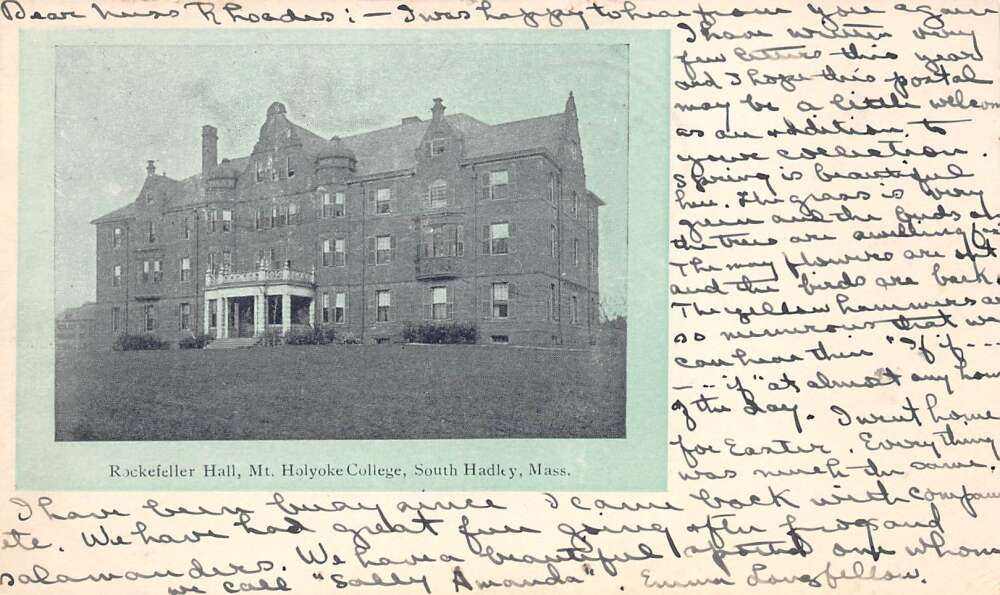 Dear Miss Rhoades : – I was happy to hear from you again
I have written very
few letters this year
and I hope this postal
may be a little welcom
as an addition to
your collection.
Spring is beautiful
here. The grass is very
green and the buds o
the trees are swelling
The may flowers are out
and the birds are back.
The yellow hammers a
so numerous that w
can hear their "If if ---
--- if" at almost any hou
of the day. I went home
for Easter. Everything
was much the same.
Rockefeller Hall, Mt. Holyoke College, South Hadley, Mass.
I have been busy since I came back with compan
etc. We have had great fun going after frogs and
salamanders. We have a beautiful spotted one whom
we call "Sally Amanda". Emma Longfellow.